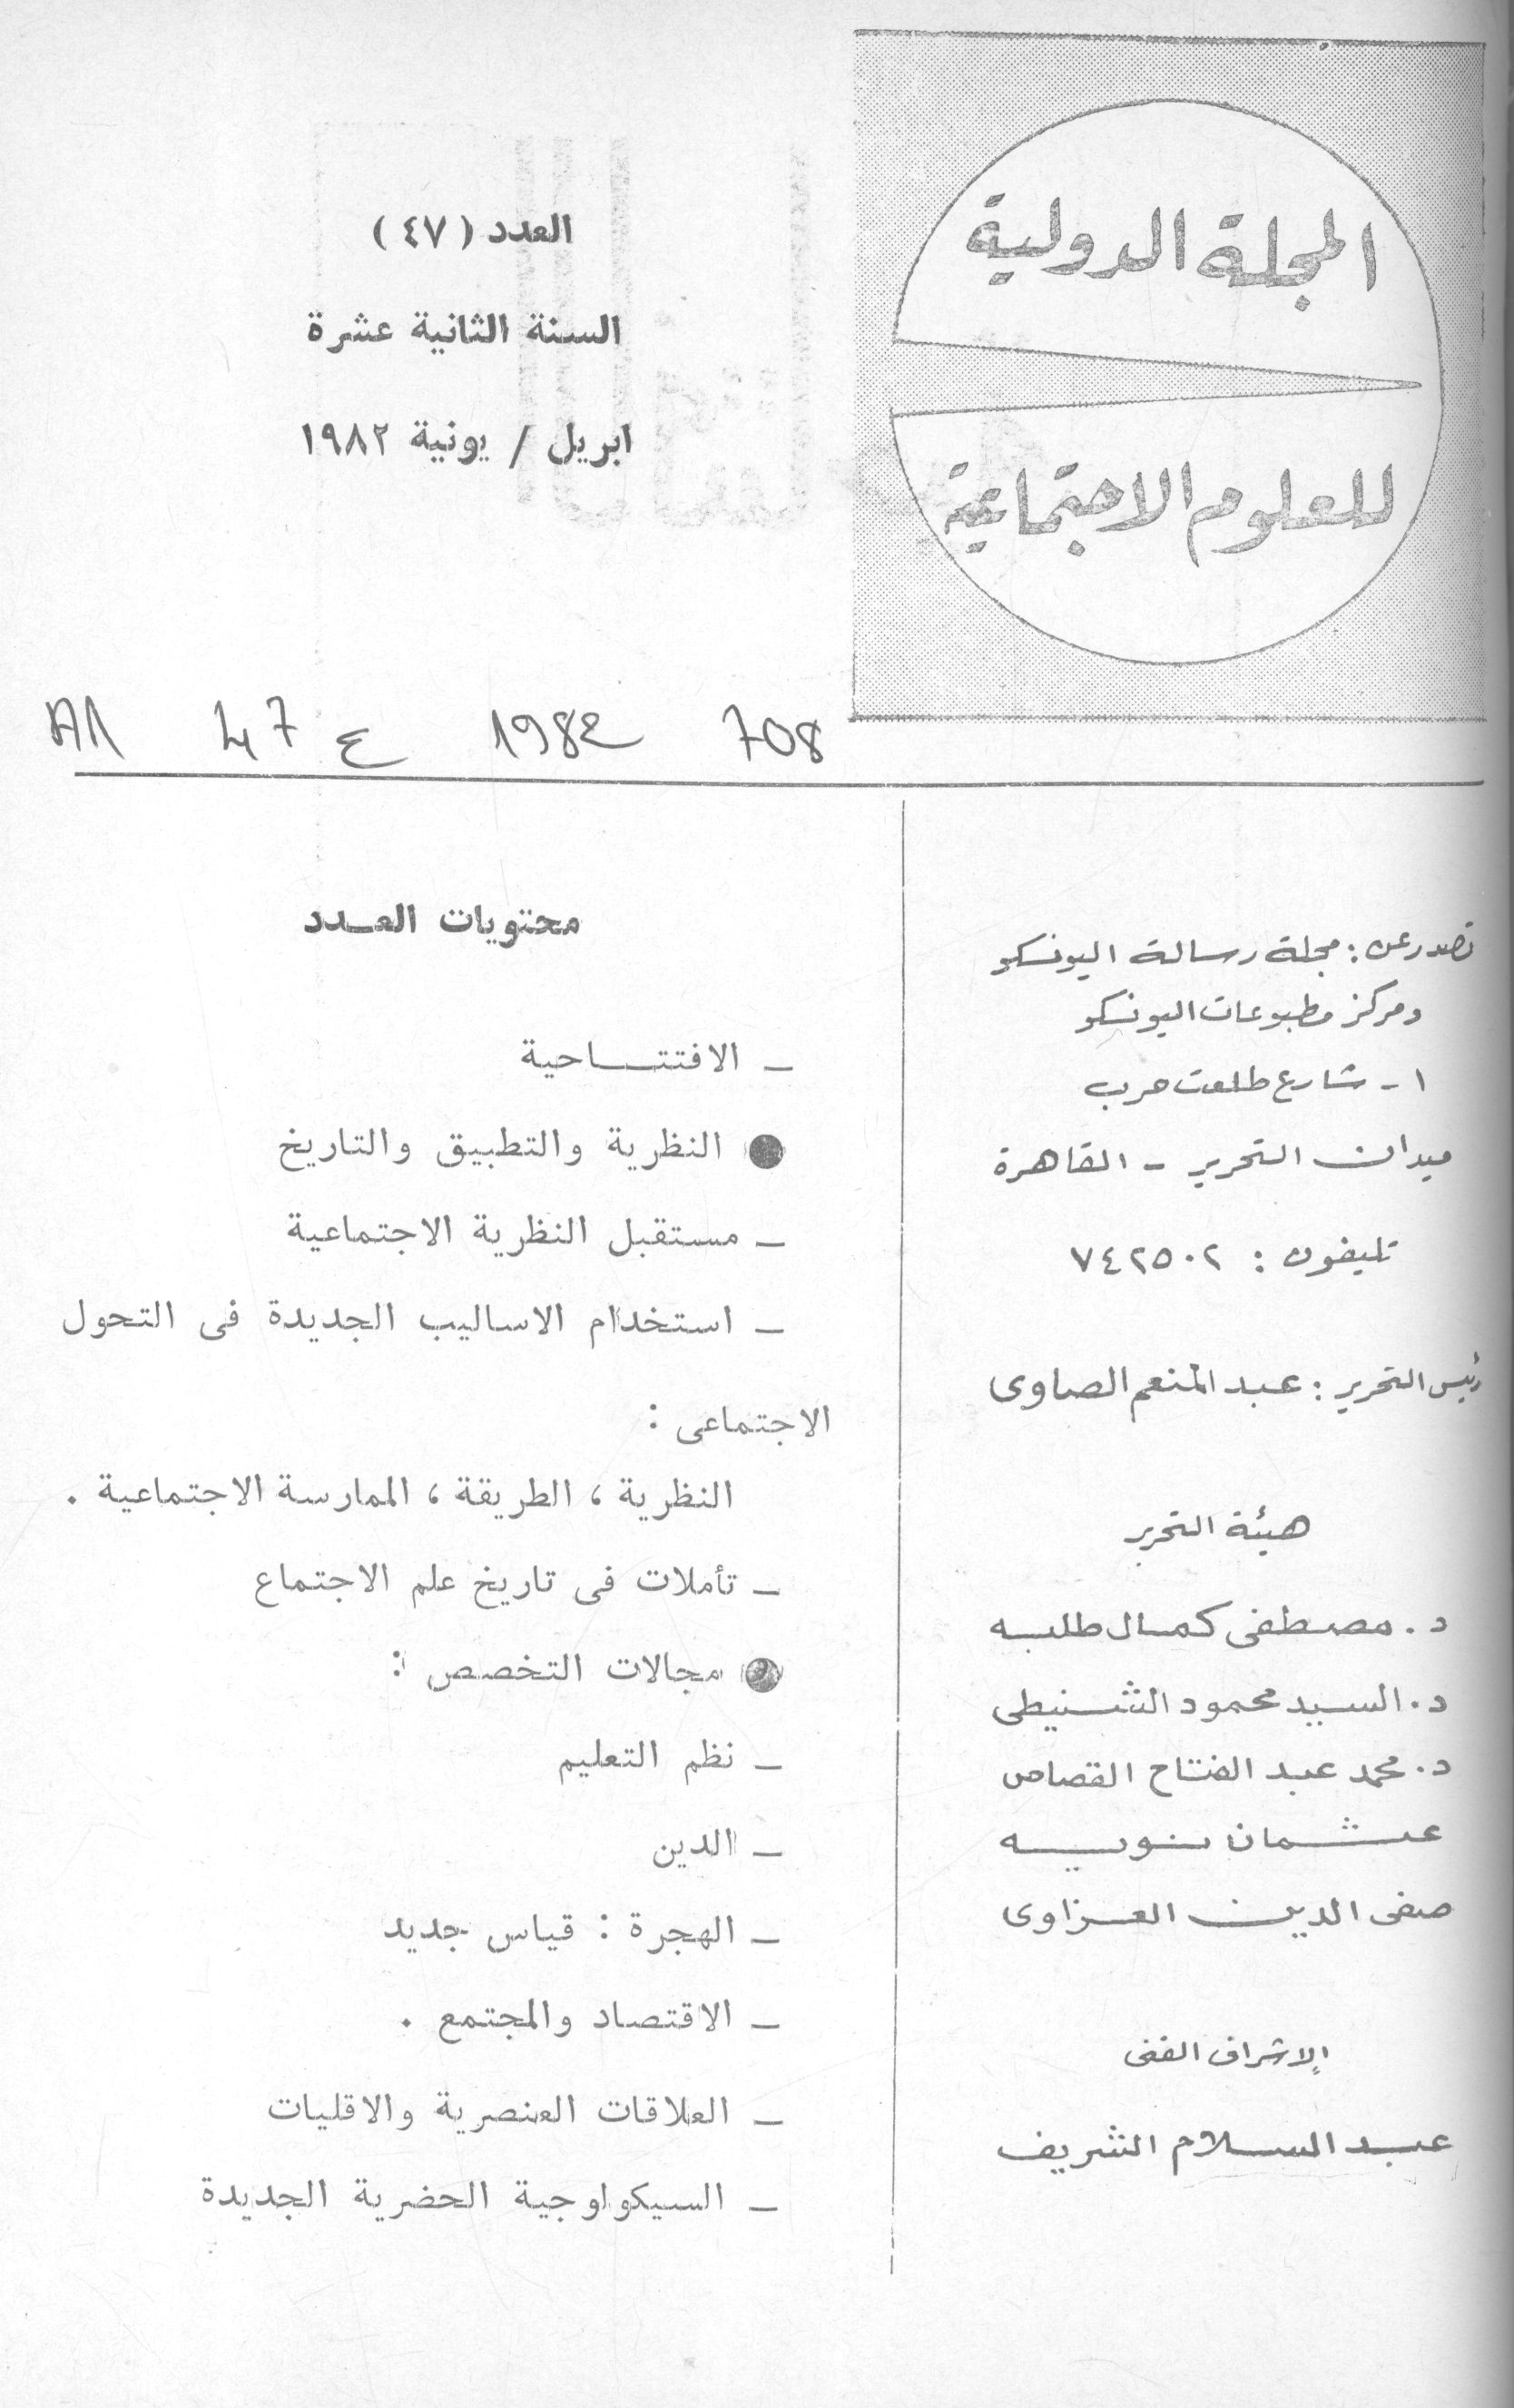 المجلة الدولية
للعلوم الاجتماعية
العدد ( ٤٧ )
السنة الثانية عشرة
ابريل / يونية ١٩٨٢
A1 47 ع 1982 708
تصدر عن : مجلة رسالة اليونسكو
ومركز مطبوعات اليونسكو
١ - شارع طلعت حرب
ميدان التحرير - القاهرة
تليفون : ٧٤٢٥٠٢
رئيس التحرير : عبد المنعم الصاوى
هيئة التحرير
د . مصطفى كمال طلبه
د . السيد محمود الشنيطى
د . محمد عبد الفتاح القصاص
عثمان نويه
صفى الدين العزاوى
الإشراف الفنى
عبد السلام الشريف
محتويات العدد
_ الافتتاحية
● النظرية والتطبيق والتاريخ
_ مستقبل النظرية الاجتماعية
_ استخدام الاساليب الجديدة فى التحول
الاجتماعى :
النظرية ، الطريقة ، الممارسة الاجتماعية .
_ تأملات فى تاريخ علم الاجتماع
● مجالات التخصص :
_ نظم التعليم
_ الدين
_ الهجرة : قياس جديد
_ الاقتصاد والمجتمع .
_ العلاقات العنصرية والاقليات
_ السيكولوجية الحضرية الجديدة